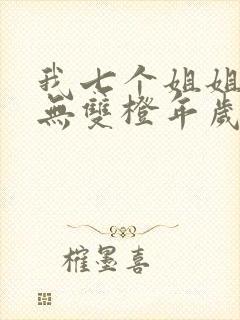 我七个姐姐
無雙橙年歲
榷墨喜